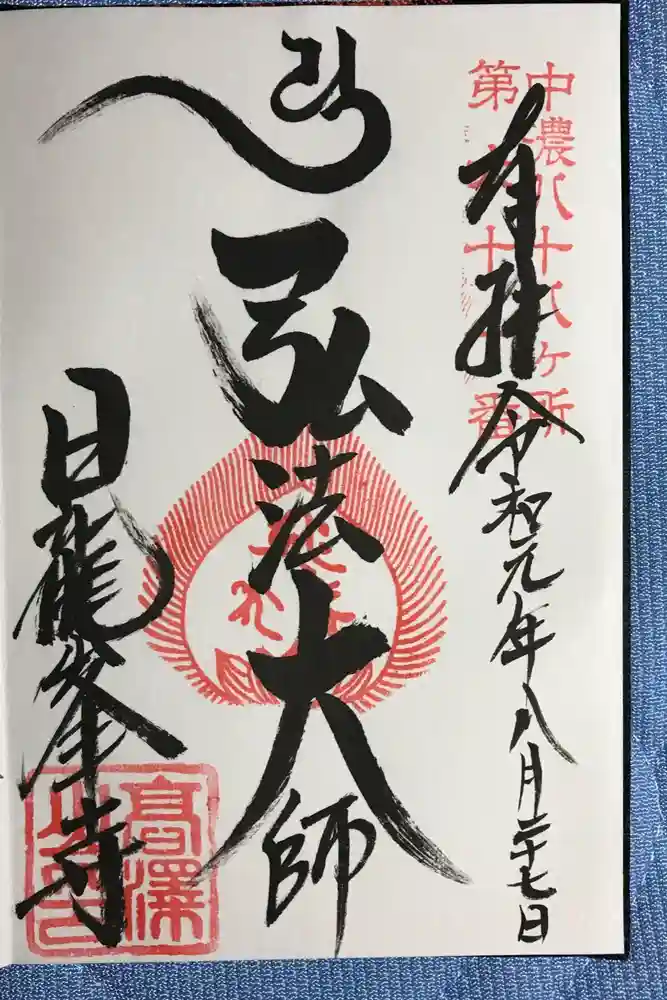 中濃八十八ヶ所
第 十 番
有拝
令和元年八月二十七日
弘法大師
日龍峯寺
高澤